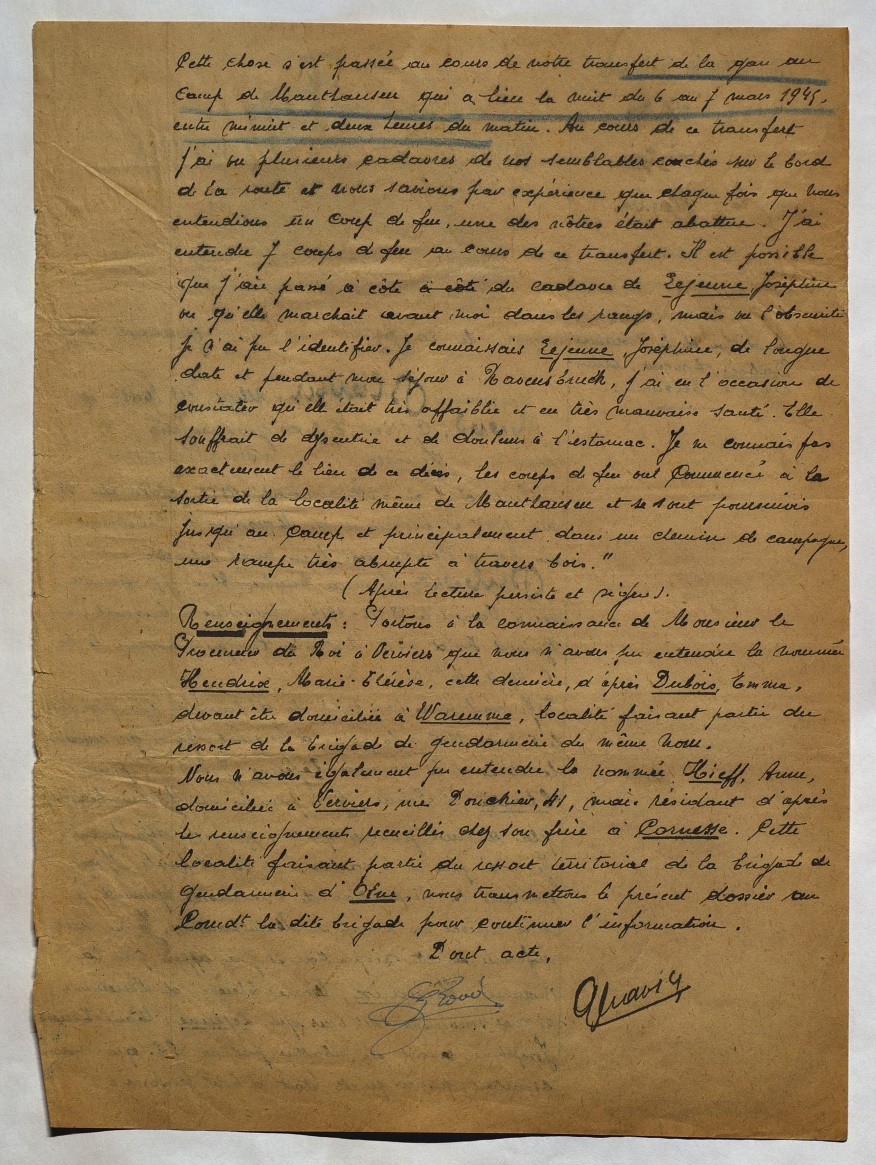 Cette chose s'est passée au cours de notre transfert de la gare au
Camp de Mauthausen qui a lieu la nuit du 6 au 7 mars 1945,
entre minuit et deux heures du matin. Au cours de ce transfert
j'ai vu plusieurs cadavres de nos semblables couchés sur le bord
de la route et nous savions par expérience que chaque fois que nous
entendions un coup de feu, une des nôtres était abattue. J'ai
entendu 7 coups de feu au cours de ce transfert. Il est possible
que j'aie passé à côté à côté du cadavre de Lejeune, Joséphine
ou qu'elle marchait avant moi dans les rangs, mais vu l'obscurité
je n'ai pu l'identifier. Je connaissais Lejeune, Joséphine, de longue
date et pendant mon séjour à Ravensbruck, j'ai eu l'occasion de
constater qu'elle était très affaiblie et en très mauvaise santé. Elle
souffrait de dysentrie et de douleurs à l'estomac. Je ne connais pas
exactement le lieu de ce décès, les coups de feu ont commencé à la
sortie de la localité même de Mauthausen et se sont poursuivis
jusqu'au Camp et principalement dans un chemin de campagne,
une rampe très abrupte à travers bois."
(Après lecture persiste et signe).
Renseignements : Portons à la connaissance de Monsieur le
Procureur du Roi à Verviers que nous n'avons pu entendre la nommée
Hendrix, Marie-Thérèse, cette dernière, d'après Dubois, Emma,
devant être domiciliée à Waremme, localité faisant partie du
ressort de la brigade de gendarmerie du même nom.
Nous n'avons également pu entendre la nommée Hieff, Anne,
domiciliée à Verviers, rue 41, mais résidant d'après
les renseignements recueillis chez son frère à Cornesse. Cette
localité faisant partie du ressort territorial de la brigade de
gendarmerie d'Olne, nous transmettons le présent dossier au
Comdt la dite brigade pour continuer l'information.
Dont acte,